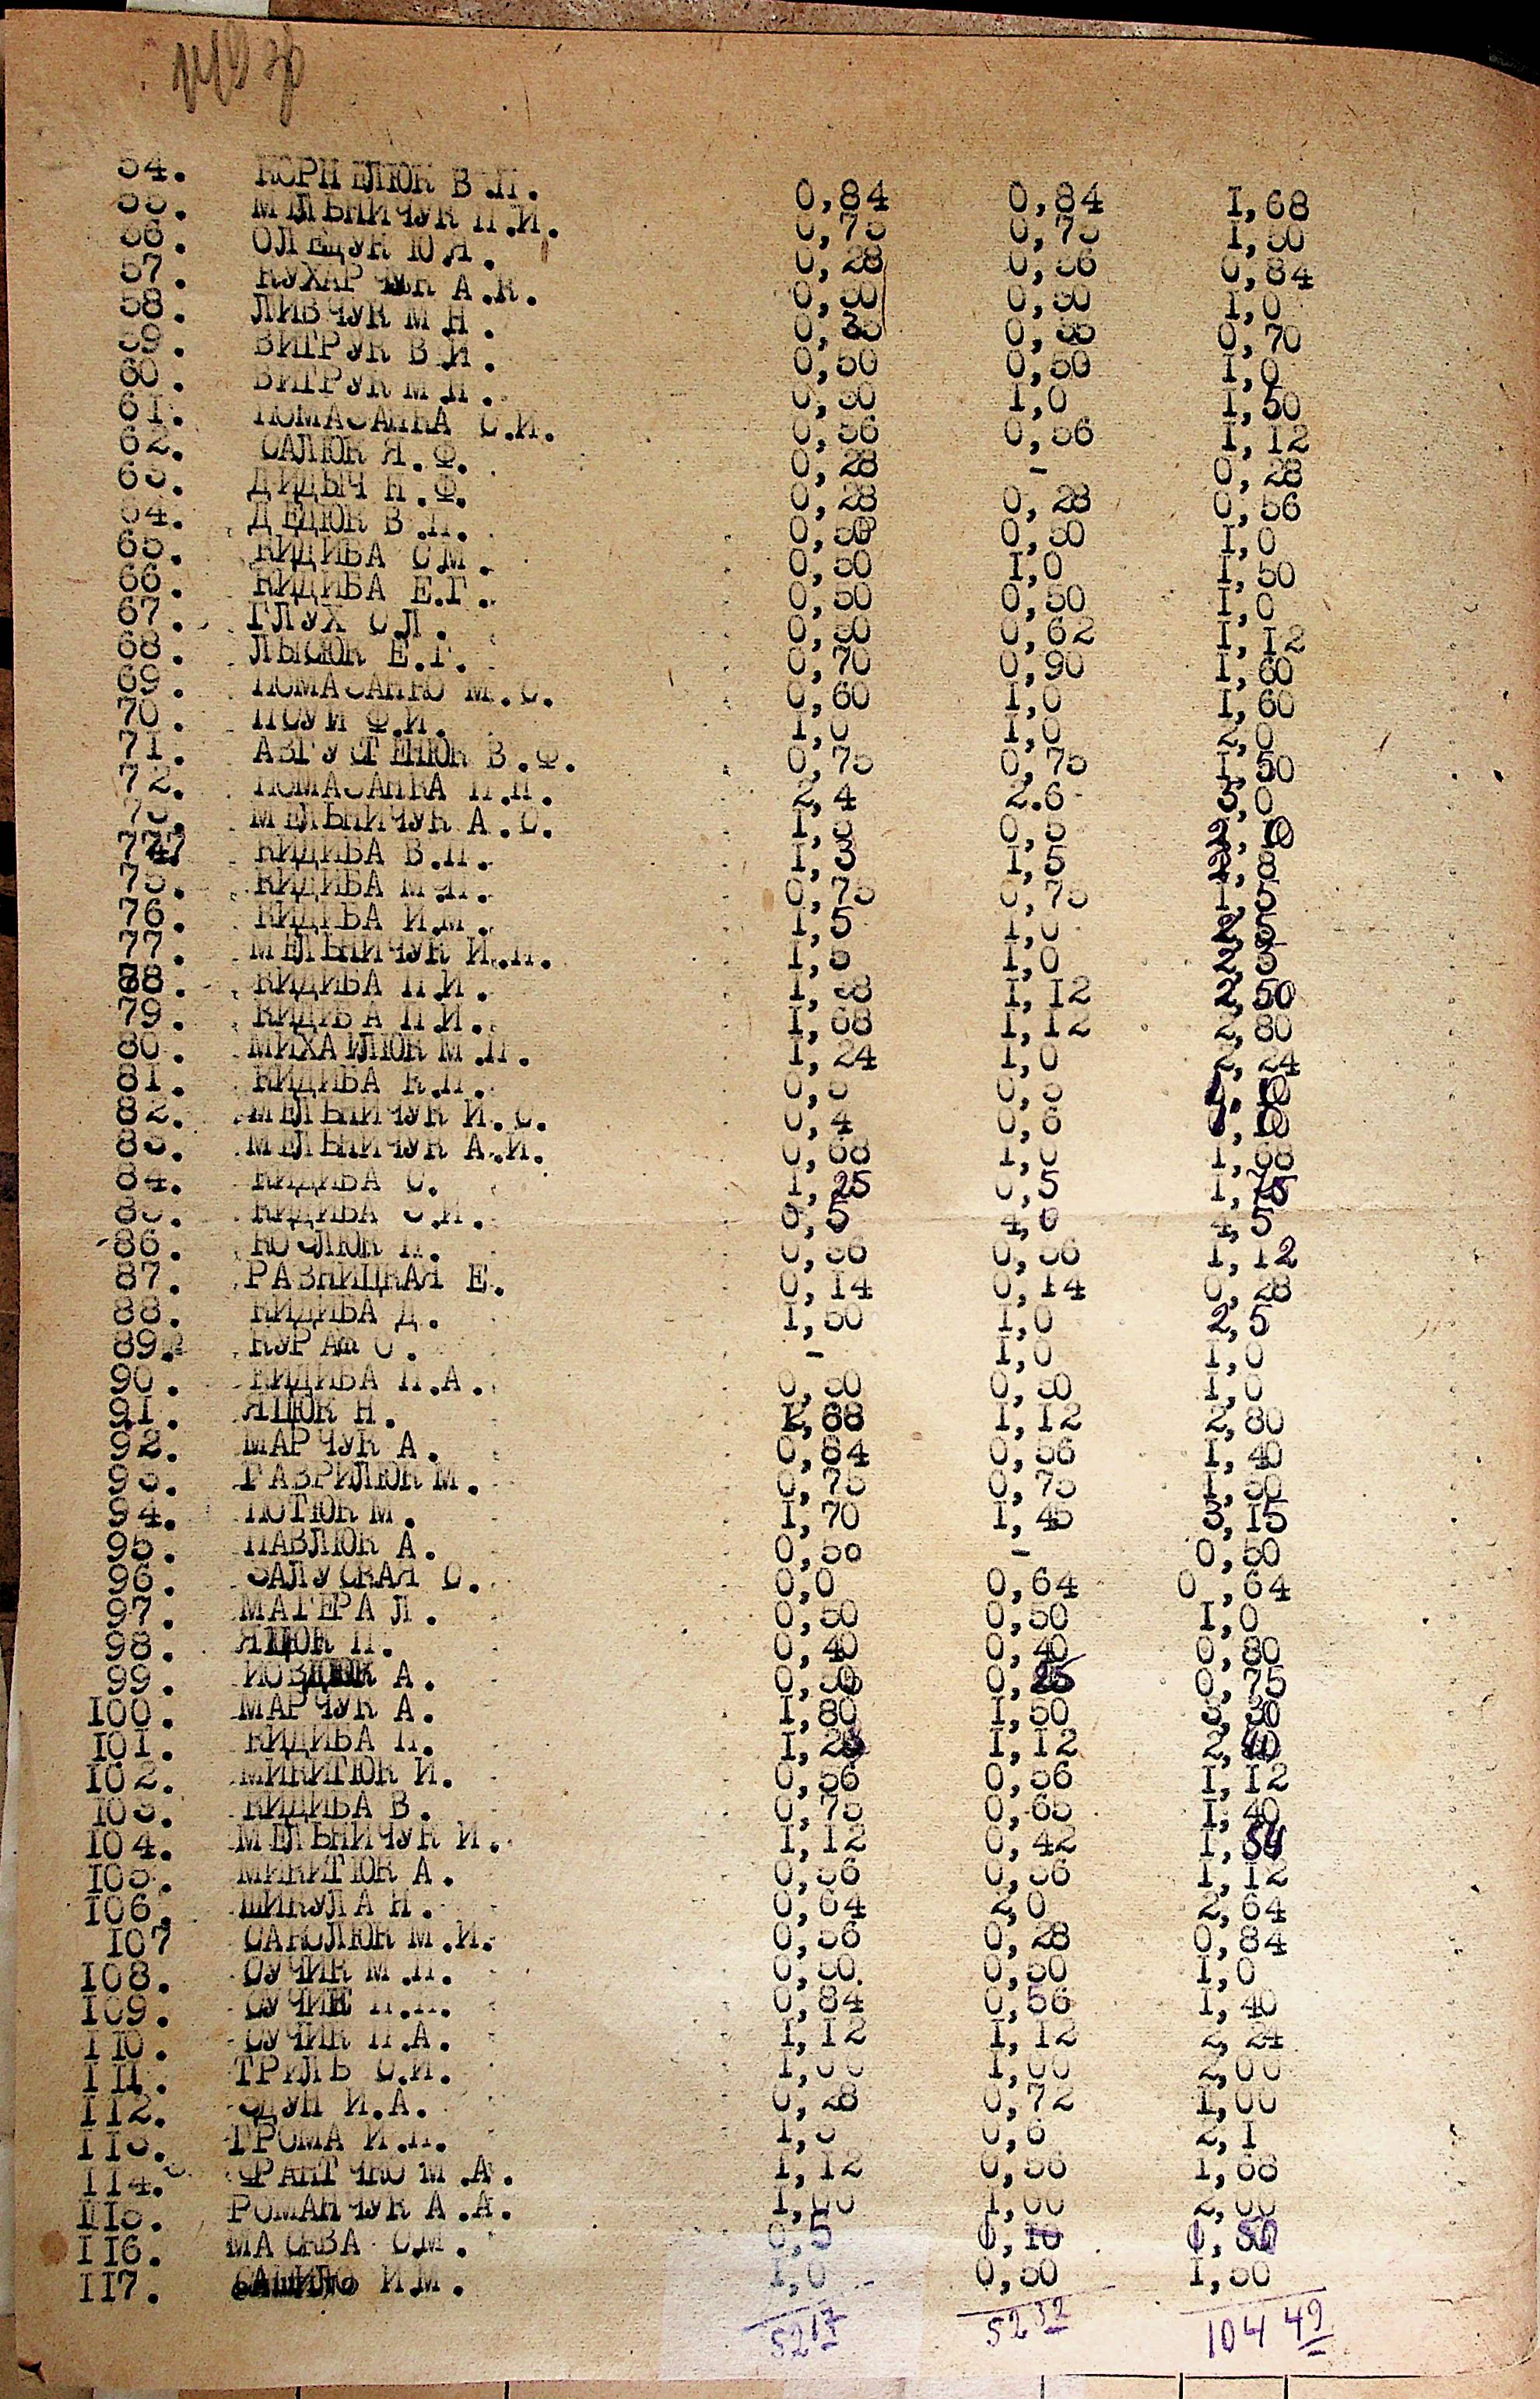 54. КОРНЕЛЮК В.П. 0,84 0,84 I,68
55. МЕЛЬНИЧУК П.И. 0,75 0,75 I,50
56. ОЛЕЩУК Ю.А. 0,28 0,56 0,84
57. КУХАРЧУК А.К. 0,50 0,50 I,0
58. ЛИВЧУК М Н. 0,35 0,35 0,70
59. ВИГРУК В.И. 0,50 0,50 I,0
60. ВИГРУК М.П. 0,50 I,0 I,50
6I. ПОМАЗАНКА С.И. 0,56 0,56 I,I2
62. САЛЮК Я.Ф. 0,28 - 0,28
63. ДИДЫЧ Н.Ф. 0,28 0,28 0,56
64. ДЕДЮК В.П. 0,50 0,50 I,0
65. КИДИБА С.М. 0,50 I,0 I,50
66. КИДИБА Е.Г. 0,50 0,50 I,0
67. ГЛУХ О.Л. 0,50 0,62 I,I2
68. ЛЫСЮК Е.Г. 0,70 0,90 I,60
69. ПОМАЗАНКО М.С. 0,60 I,0 I,60
70. ПСУЙ Ф.И. I,0 I,0 2,0
7I. АВГУСТЕНЮК В.Ф. 0,75 0,75 I,50
72. ПОМАЗАНКА П.П. 2,4 2.6 5,0
73. МЕЛЬНИЧУК А.С. I,5 0,5 2,I0
74. КИДИБА В.П. I,3 I,5 2,8
75. КИДИБА М.П. 0,75 0,75 I,5
76. КИДИБА И.М. I,5 I,0 2,5
77. МЕЛЬНИЧУК И.П. I,5 I,0 2,5
78. КИДИБА П.И. I,38 I,I2 2,50
79. КИДИБА П.И. I,68 I,I2 2,80
80. МИХАЙЛЮК М.П. I,24 I,0 2,24
8I. КИДИБА К.П. 0,5 0,5 I,I0
82. МЕЛЬНИЧУК И.С. 0,4 0,6 I,I0
83. МЕЛЬНИЧУК А.И. 0,68 I,0 I,68
84. КИДИБА С. I,25 0,5 I,75
85. КИДИБА З.И. 0,5 4,0 4,5
86. КОЗЛЮК П. 0,56 0,56 I,I2
87. РАВНИЦКАЯ Е. 0,I4 0,I4 0,28
88. КИДИБА Д. I,50 I,0 2,5
89. КУРАШ С. - I,0 I,0
90. КИДИБА П.А. 0,50 0,50 I,0
9I. ЯЦЮК Н. I,68 I,I2 2,80
92. МАРЧУК А. 0,84 0,56 I,40
93. ГАВРИЛЮК М. 0,75 0,75 I,50
94. ПОТЮК М. I,70 I,45 3,I5
95. ПАВЛЮК А. 0,50 - 0,50
96. ЗАЛУСКАЯ О. 0,0 0,64 0,64
97. МАГЕРА Л. 0,50 0,50 I,0
98. ЯЦЮК П. 0,40 0,40 0,80
99. А. 0,50 0,25 0,75
I00. МАРЧУК А. I,80 I,50 3,30
I0I. КИДИБА П. I,28 I,I2 2,40
I02. МИКИТЮК И. 0,56 0,56 I,I2
I03. КИДИБА В. 0,75 0,65 I,40
I04. МЕЛЬНИЧУК И. I,I2 0,42 I,54
I05. МИКИТЮК А. 0,56 0,56 I,I2
I06. ШИКУЛА Н. 0,64 2,0 2,64
I07 САКОЛЮК М.И. 0,56 0,28 0,84
I08. СУЧИК М.П. 0,50 0,50 I,0
I09. СУЧИК П.П. 0,84 0,56 I,40
II0. СУЧИК П.А. I,I2 I,I2 2,24
III. ТРИЛЬ О.И. I,00 I,00 2,00
II2. ЗДУН И.А. 0,28 0,72 I,00
II3. ГРОМА И.П. I,5 0,6 2,I
II4. М.А. I,I2 0,56 I,68
II5. РОМАНЧУК А.А. I,00 I,00 2,00
II6. МАСЮВА С.М. 0,5
II7. И.М. I,0 0,50 I,50
52 17 52 32 104 49